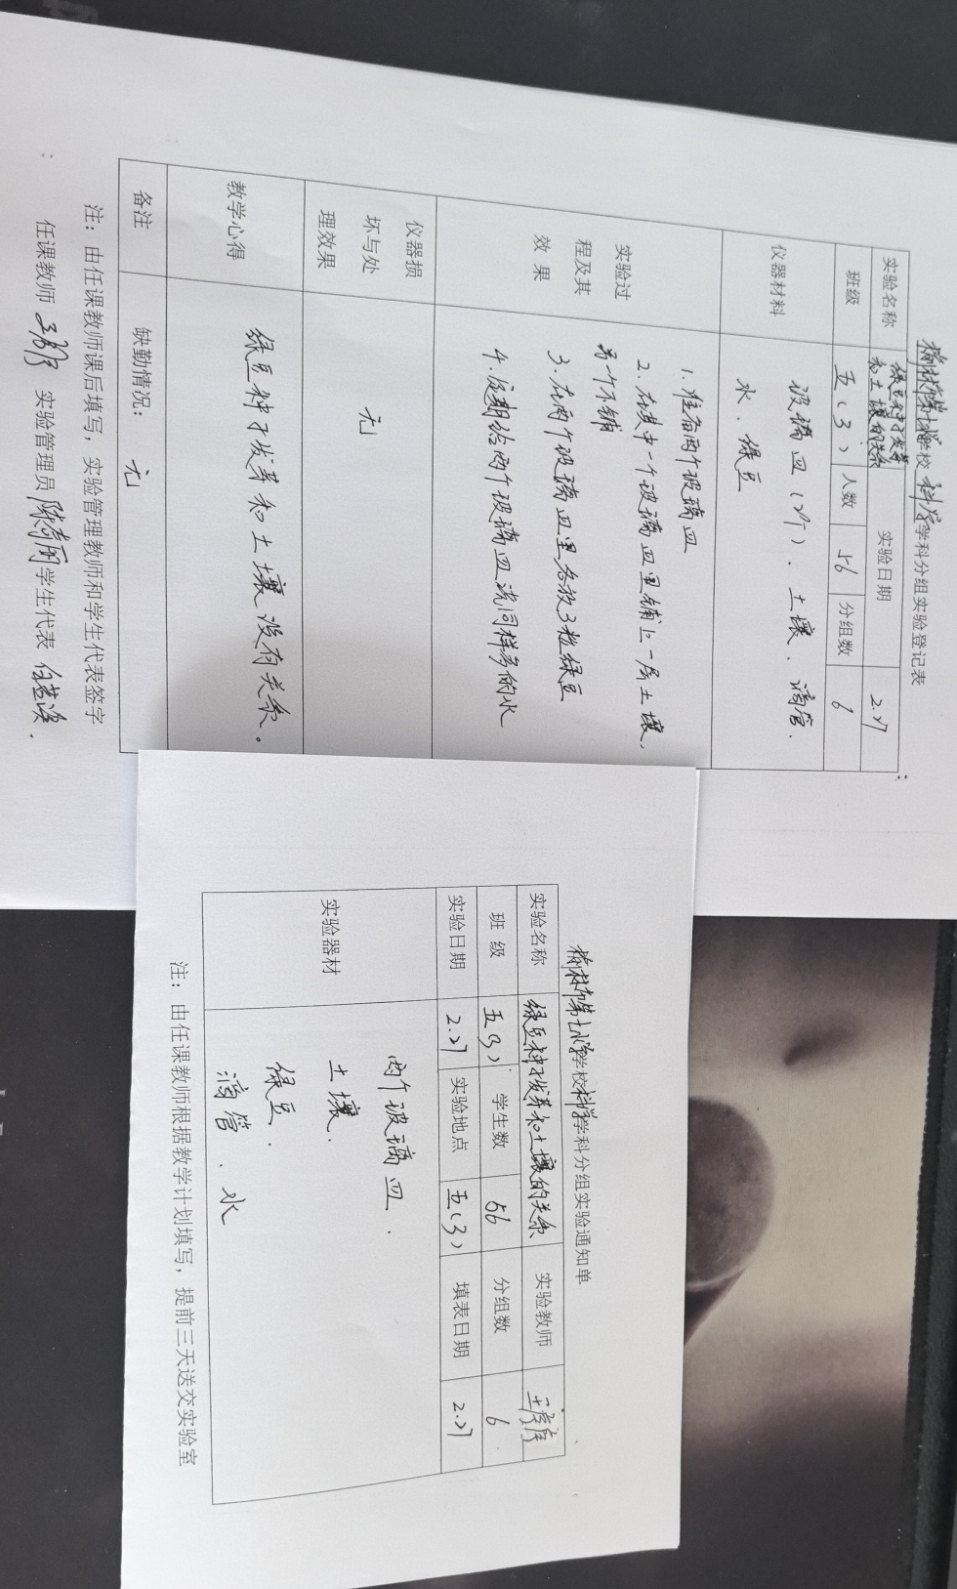 榆林市第七小学学校 科学学科分组实验登记表
实验名称 绿豆种子发芽和土壤的关系 实验日期 2.27
班级 五(3) 人数 56 分组数 6
仪器材料 玻璃皿(2个)、土壤、滴管、
水、绿豆
实验过程及其效果
1. 准备两个玻璃皿
2. 在其中一个玻璃皿里铺上一层土壤,
另一个不铺
3. 在两个玻璃皿里各放3粒绿豆
4. 定期给两个玻璃皿浇同样多的水
仪器损坏与处理效果 无
教学心得 绿豆种子发芽和土壤没有关系。
备注 缺勤情况: 无
注:由任课教师课后填写,实验管理教师和学生代表签字
任课教师 实验管理员 学生代表
榆林市第七小学学校科学学科分组实验通知单
实验名称 绿豆种子发芽和土壤的关系 实验教师
班 级 五(3) 学生数 56 分组数 6
实验日期 2.27 实验地点 五(3) 填表日期 2.27
实验器材 两个玻璃皿.
土壤.
绿豆.
滴管.水
注:由任课教师根据教学计划填写,提前三天送交实验室